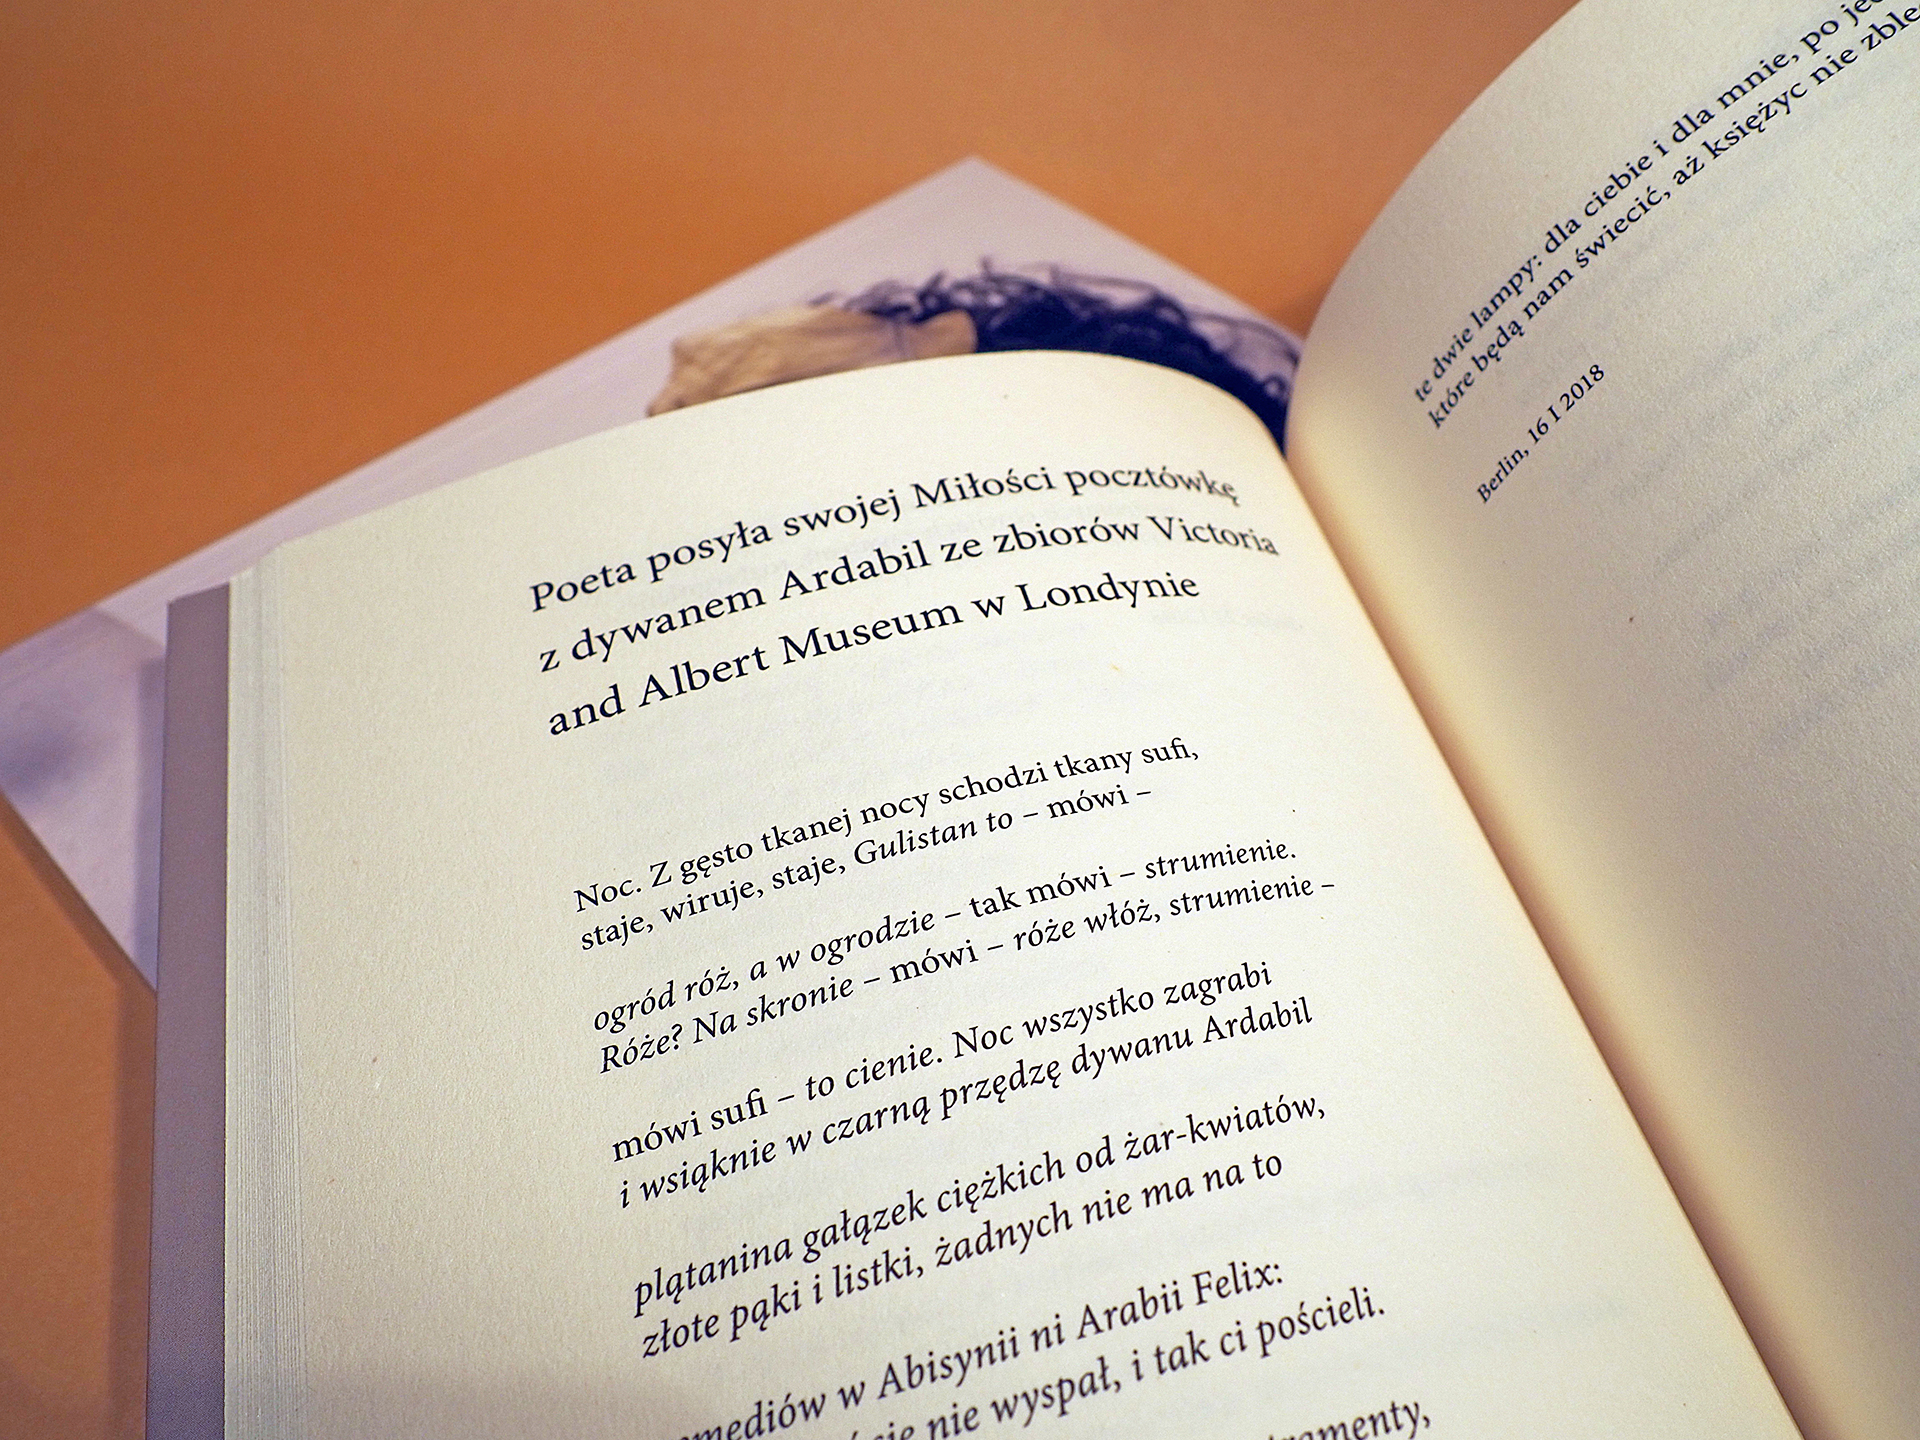 Poeta posyła swojej Miłości pocztówkę
z dywanem Ardabil ze zbiorów Victoria
and Albert Museum w Londynie
Noc. Z gęsto tkanej nocy schodzi tkany sufi,
staje, wiruje, staje, Gulistan to – mówi –
ogród róż, a w ogrodzie – tak mówi – strumienie.
Róże? Na skronie – mówi – róże włóż, strumienie –
mówi sufi – to cienie. Noc wszystko zagrabi
i wsiąknie w czarną przędzę dywanu Ardabil
plątanina gałązek ciężkich od żar-kwiatów,
złote pąki i listki, żadnych nie ma na to
w Abisynii ni Arabii Felix:
nie wyspał, i tak ci pościeli.
te dwie lampy: dla ciebie i dla mnie, po
które będą nam świecić, aż księżyc nie
Berlin, 16 I 2018